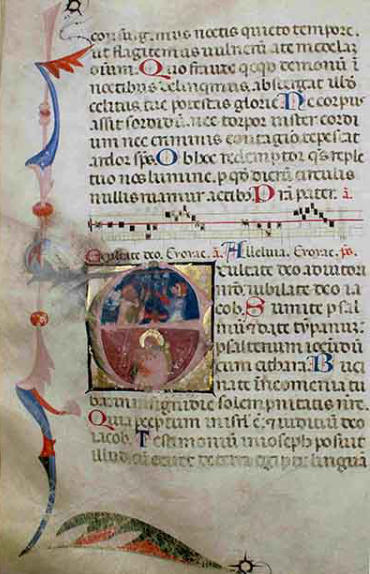 consurgimus noctis quieto tempore.
ut flagitemus vulnerū a te medelaʒ
oīum. Quo fraude quicqd demonū ī
noctibus deliquimus, abstergat illd
celitus tue potestas glorie. Ne corpus
assit sordidū. nec torpor instet cordi
um nec criminis contagio tepescat
ardor sps. Ob hoc redemptor qs reple
tuo nos lumine. p qd dierū circulis
nullis ruamur actibus. Pra pater. a.
Exultate deo. Evovae. a. Alleluia. Evovae. ps.
Exultate deo adiutori
nrō: iubilate deo ia
cob. Sumite psal
mū 7 date tympanū:
psalterium iocūdū
cum cithara. Buci
nate ī neomenia tu
ba: in insigni die solempnitatis nre.
Quia preceptum in isrl ē: 7 iudiciū deo
iacob. Testimonium in ioseph posuit
illud cū exiret de terra egipti: linguā